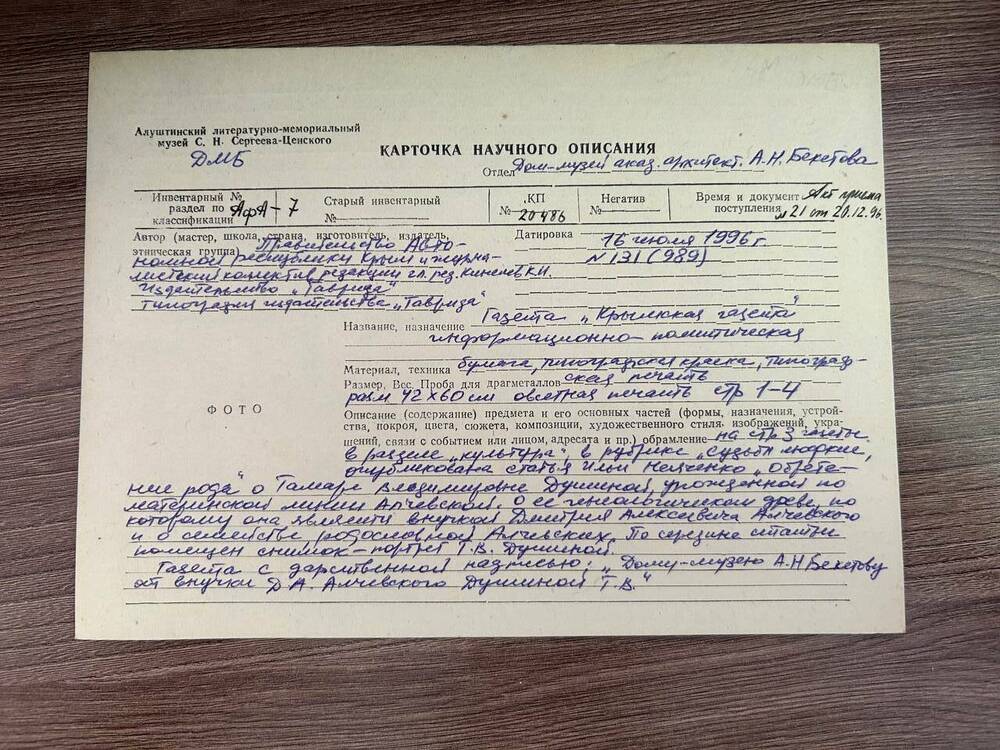 Алуштинский литературно-мемориальный
музей С. Н. Сергеева-Ценского
ДМБ
КАРТОЧКА НАУЧНОГО ОПИСАНИЯ
Отдел Дом-музей акад. архитект. А.Н. Бекетова
Инвентарный №
раздел по
классификации АфА-7
Старый инвентарный
№
КП
№ 20486
Негатив
№
Время и документ Акт приема
поступления №21 от 20.12.96
Автор (мастер, школа, страна, изготовитель, издатель,
этническая группа) Правительство Авто-
номной республики Крым и журна-
листский коллектив редакции гл. ред. К.И.
издательство „Таврида"
типография издательства „Таврида"
Датировка 16 июля 1996 г
N 131 (989)
Название, назначение Газета „Крымская газета"
информационно-политическая
Материал, техника бумага, типографская краска, типограф-
ская печать
Размер, Вес. Проба для драгметаллов
разм 42х60 см печать стр 1-4
ФОТО
Описание (содержание) предмета и его основных частей (формы, назначения, устрой-
ства, покроя, цвета, сюжета, композиции, художественного стиля. изображений, укра-
щений, связи с событием или лицом, адресата и пр.) обрамление на стр 3 газеты
в разделе „культура", в рубрике „судьбы людские,
опубликована статья Ильи „Обрете-
ние рода" о Тамаре Владимировне Душиной, урожденной по
материнской линии Алчевской. О ее генеологическом древе, по
которому она является внучкой Дмитрия Алексеевича Алчевского
и о семействе родословной Алчевских. По середине статьи
помещен снимок-портрет Т.В. Душиной.
Газета с дарственной надписью: „Дому-музею А.Н Бекетову
от внучки Д.А. Алчевского Душиной Т.В."